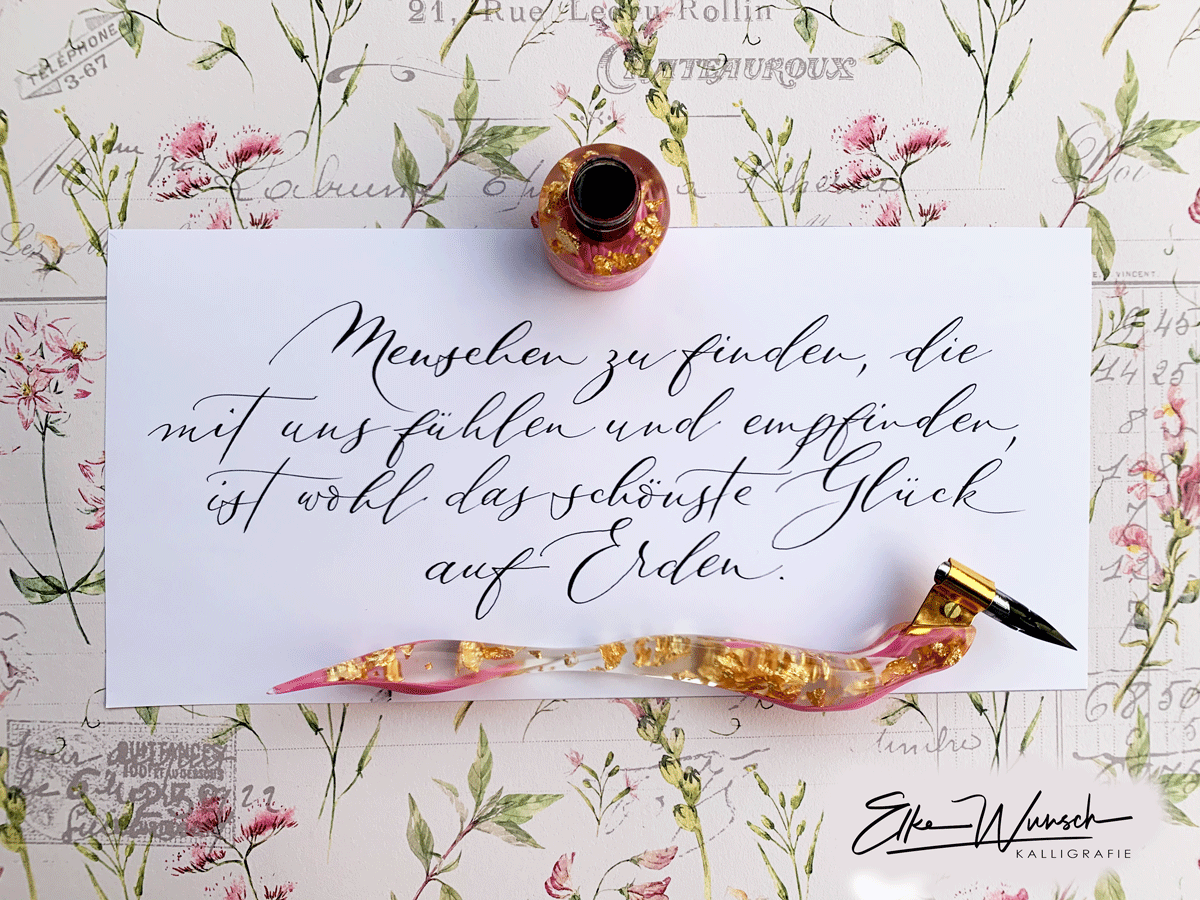 21, Rue Ledru-Rollin
CHATEAUROUX
TELEPHONE
13-67
VINCENT.
Menschen zu finden, die
mit uns fühlen und empfinden,
ist wohl das schönste Glück
auf Erden.
QUITTANCES
Elke Wunsch
KALLIGRAFIE